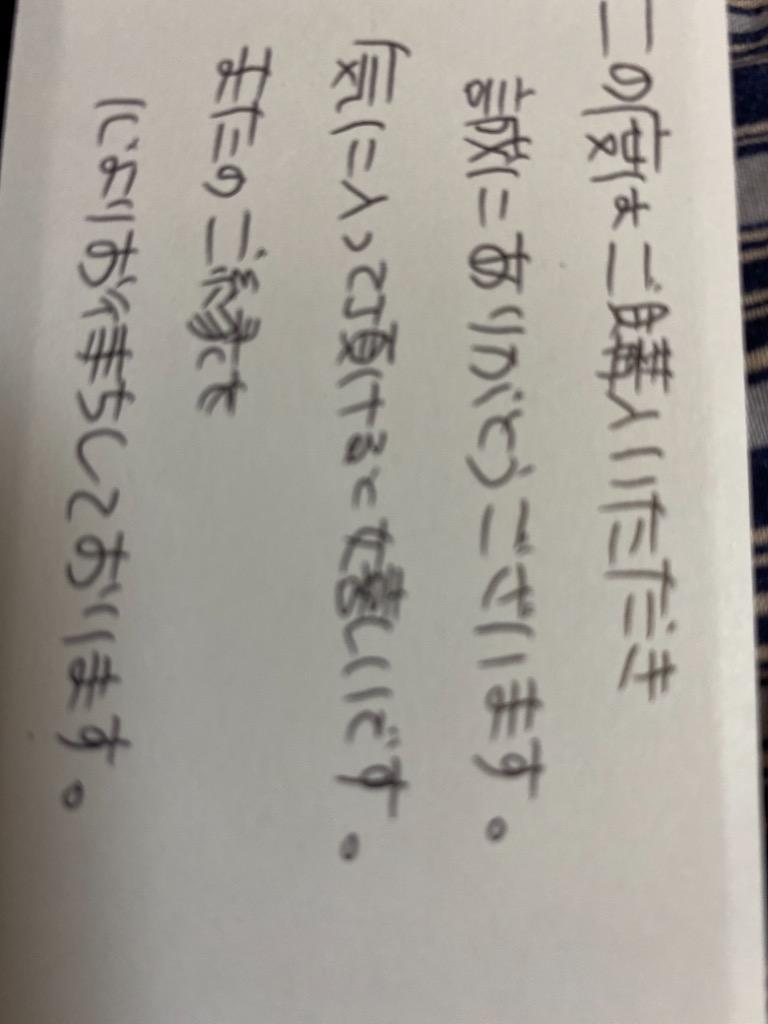 この度はご購入いただき
誠にありがとうございます。
気に入って頂けると嬉しいです。
またのご縁を
心よりお待ちしております。